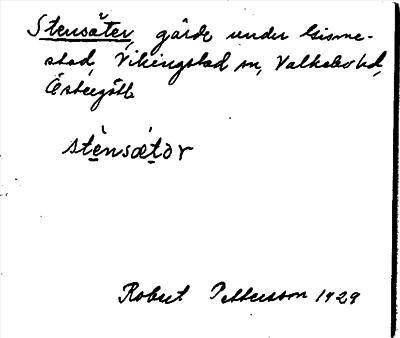 Stensäter, gård under Gisme-
stad, Vikingstad sn, Valkebo hd,
Östergötl.
stènsætər
Robert Pettersson 1929